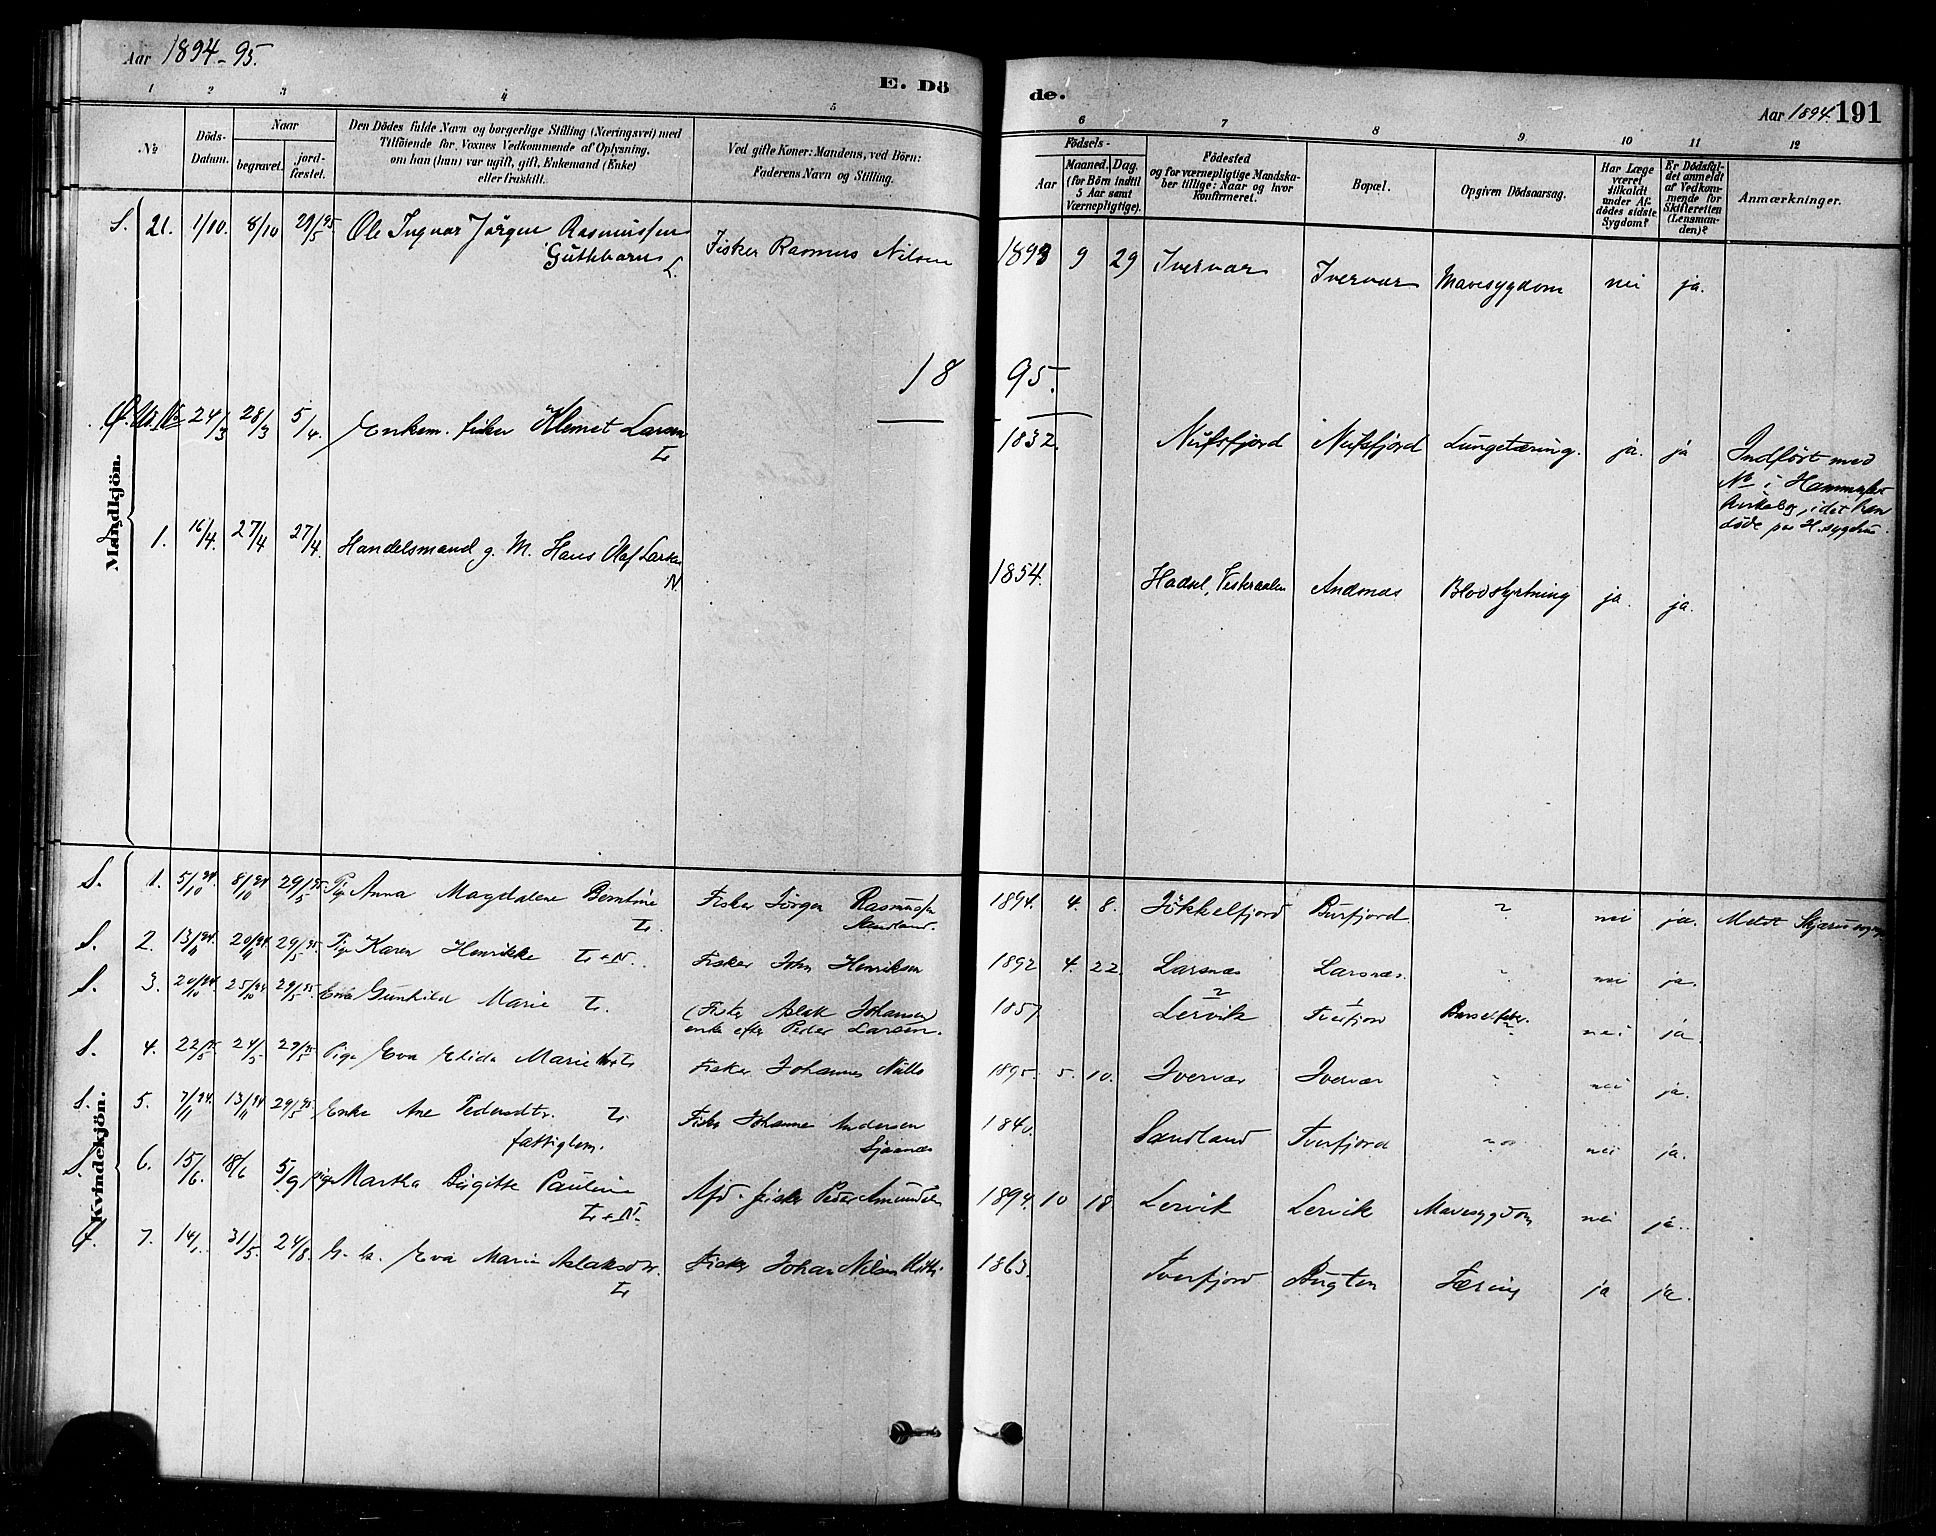 Aar 1894-95.
E. Dö
de.
Aar 1894. 191
1 2 3 4 5 6 7 8 9 10 11 12
No
Döds-Datum.
Naar
begravet.
jord-fæstet.
Den Dödes fulde Navn og borgerlige Stilling (Næringsvei) med
Tilföiende for Voxnes Vedkommende af Oplysning,
om han (hun) var ugift, gift, Enkemand (Enke)
eller fraskilt.
Ved gifte Koner: Mandens, ved Börn:
Faderens Navn og Stilling.
Födsels-
Aar
Maaned. Dag.
(for Börn indtil
5 Aar samt
Værnepligtige).
Födested
og for værnepligtige Mandska-
ber tillige: Naar og hvor
Konfirmeret.
Bopæl.
Opgiven Dödsaarsag.
Har Læge
været
tilkaldt
under Af-
dödes sidste
Sygdom?
Er Dödsfal-
det anmeldt
af Vedkom-
mende for
Skifteretten
(Lensman-
den)?
Anmærkninger.
Mandkjön.
S. 21. 1/10. 8/10 29/5 95 Ole Ingvar Jörgen Rasmussen Fisker Rasmus Nilsen 1893 9 29 Ivervar Ivervar Mavesygdom nei ja.
L.
18 95.
24/3 28/3 5/4. Enkem. fisker Klemet Larsen 1832. Nufsfjord Nufsfjord Lungetæring. ja. ja Indført med
No i
døde paa H. sygehus.
1. 16/4. 27/4 27/4. Handelsmand g. M. Hans Olaf Larsen 1854. Hadsel, Vesteraalen Andsnæs Blodstyrtning ja. ja.
N.
Kvindekjön.
S. 1. 5/10 94. 8/10 94 29/5 95 Pige Anna Magdalene Berntine Fisker Jörgen Rasmussen 1894. 4. 8. Jökkelfjord Burfjord. ? nei ja. Meldt
Sandland.
S. 2. 13/11 94. 20/11 94. 29/5 95. Pige Karen Henrikke Fisker John Henriksen 1892 4. 22. Larsnæs Larsnæs. nei ja.
S. 3. 20/10 94. 25/10 94 29/5 95 Gunhild Marie (Fisker Aslak Johansen 1857 Lervik Tverfjord nei ja.
enke efter Peder Larsen.
S. 4. 22/5 95. 24/5. 29/5 95. Pige Eva Elida Marie Fisker Johannes 1895. 5. 10. Ivervar Ivervar nei ja.
S. 5. 7/11 94. 13/11 94 29/5 95. Enke Ane Pedersdtr. Fisker Johannes Andersen 1840. Sandland Tverfjord nei ja.
fattiglem.
S. 6. 15/6. 18/6 5/9 pige Martha Birgitte Pauline Afd. fisker Peder Amundsen 1894. 10 18 Lervik Lervik Mavesygdom nei ja.
7. 14/1. 31/5. 24/8. G. k. Eva Marie Aslaksdtr. Fisker Johan Nilsen 1863. Tverfjord Bugten Tæring ja ja.